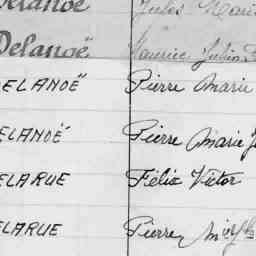 Delanoë Jules Marie
Delanoë Maurice Julien
DELANOË Pierre Marie
DELANOË Pierre Marie
DELARUE Félix Victor
DELARUE Pierre